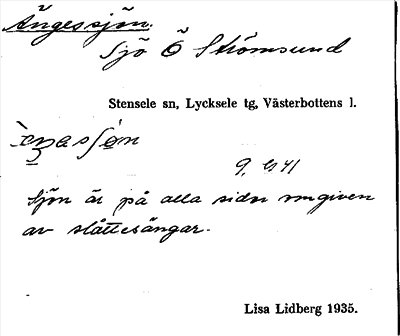 Ängessjön.
Sjö Ö Strömsund
Stensele sn, Lycksele tg, Västerbottens l.
Sjön är på alla sidor omgiven
av slåttesängar.
Lisa Lidberg 1935.